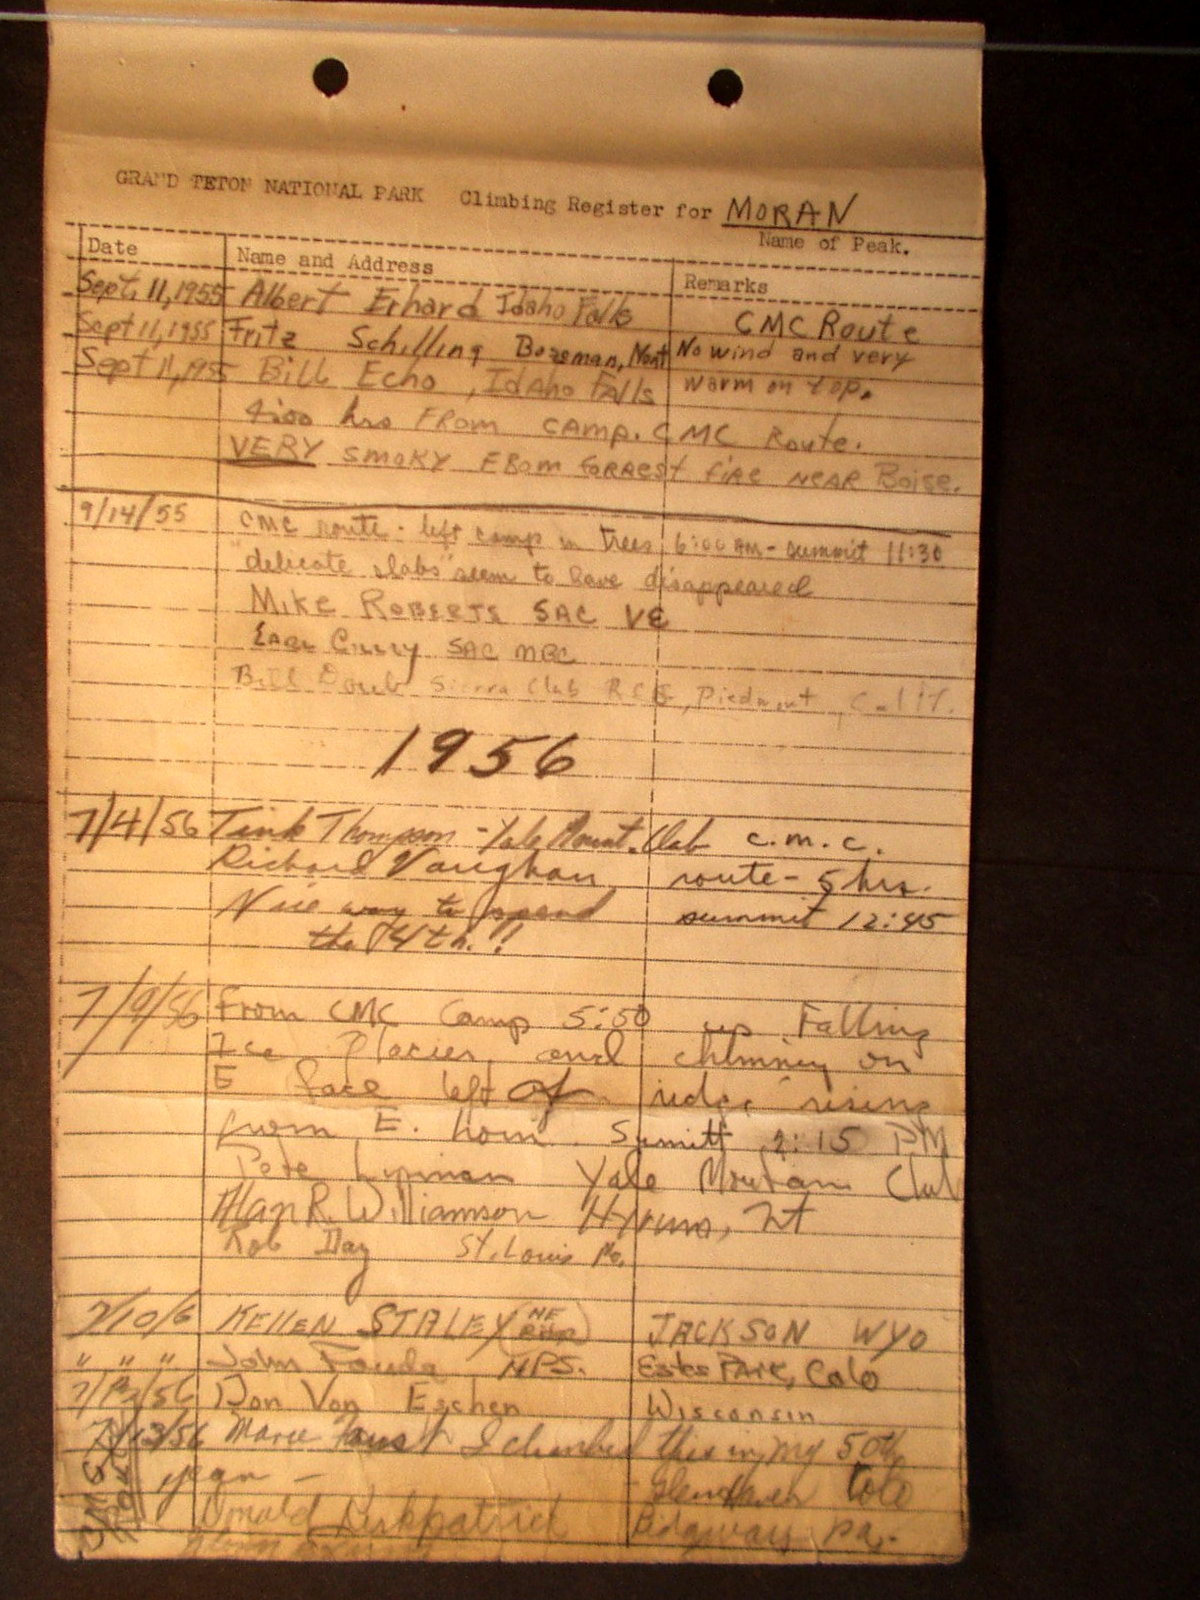 GRAND TETON NATIONAL PARK Climbing Register for MORAN
Name of Peak.
Date Name and Address Remarks
Sept, 11, 1955 Albert Erhard Idaho Falls CMC Route
Sept 11, 1955 Fritz Schilling Bozeman, Mont No wind and very
Sept 11, 1955 Bill Echo, Idaho Falls warm on top.
4:00 hrs From camp. CMC Route.
VERY SMOKY FROM FORREST FIRE NEAR Boise.
9/14/55 CMC route - left camp in trees 6:00 AM - summit 11:30
"delicate slabs" seem to have disappeared
MIKE ROBERTS SAC VE
Curry SAC
Bill Sierra Club RCS, Piedmont, Calif.
1956
7/4/56 Tink Thompson - Yale Mount. Club C.M.C.
Richard Vaughan route - 5 hrs.
Nice way to spend summit 12:45
the 4th!!
7/9/56 From CMC Camp 5:50 up Falling
Ice Glacier, and chimney on
E face left of ridge rising
from E. horn. Summitt 2:15 PM
Pete Lipman Yale Mountain Club
Alan R. Williamson Hyrum, Ut
Rob Day St. Louis Mo.
7/10/6 KELLEN STALEY JACKSON WYO
" " " John Fonda NPS. Estes Park, Colo
/56 Don Von Eschen Wisconsin
7/13/56 Marie Faust I climbed this in my 50th
year - Colo
Donald Kirkpatrick Ridgway, Pa.